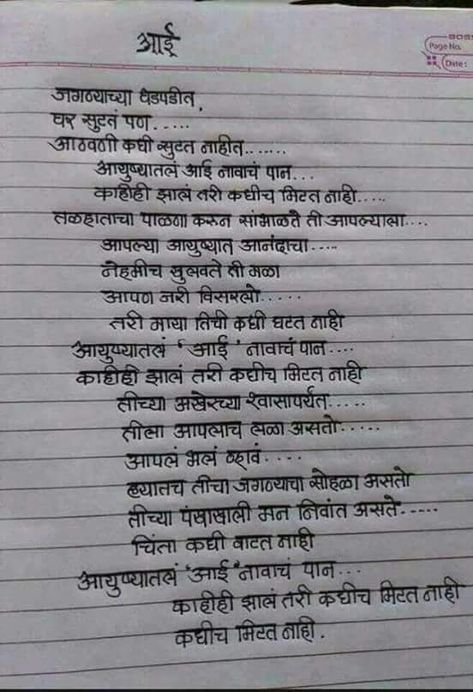 BOSS
Page No.
Date:
आई
जगण्याच्या धडपडीत,
घर सुटतं पण.....
आठवणी कधी सुटत नाहीत......
आयुष्यातलं आई नावाचं पान...
काहीही झालं तरी कधीच मिटत नाही....
तळहाताचा पाळणा करून सांभाळते ती आपल्याला....
आपल्या आयुष्यात आनंदाचा.....
नेहमीच खुलवते ती मळा
आपण जरी विसरलो.....
तरी माया तिची कधी घटत नाही
आयुष्यातलं 'आई' नावाचं पान....
काहीही झालं तरी कधीच मिटत नाही
तीच्या अखेरच्या श्वासापर्यंत.....
तीला आपलाच लळा असतो.....
आपलं भलं व्हावं.....
ह्यातच तीचा जगण्याचा सोहळा असतो
तीच्या पंखाखाली मन निवांत असते.....
चिंता कधी वाटत नाही
आयुष्यातलं 'आई' नावाचं पान...
काहीही झालं तरी कधीच मिटत नाही
कधीच मिटत नाही.